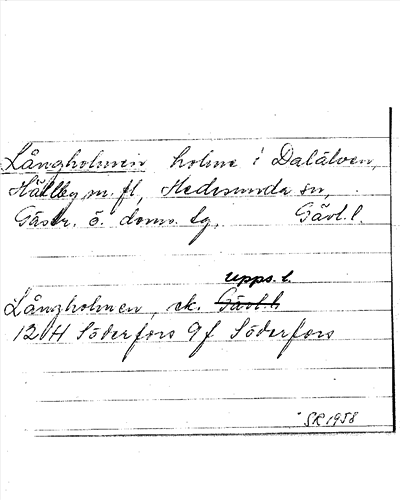 Långholmen holme i Dalälven,
Hällby m. fl, Hedesunda sn,
Gästr. ö. doms. lg, Gävl. l.
Upps. l.
Långholmen, ek. Gävl. l.
12 H Söderfors 9 f Söderfors
SR 1958